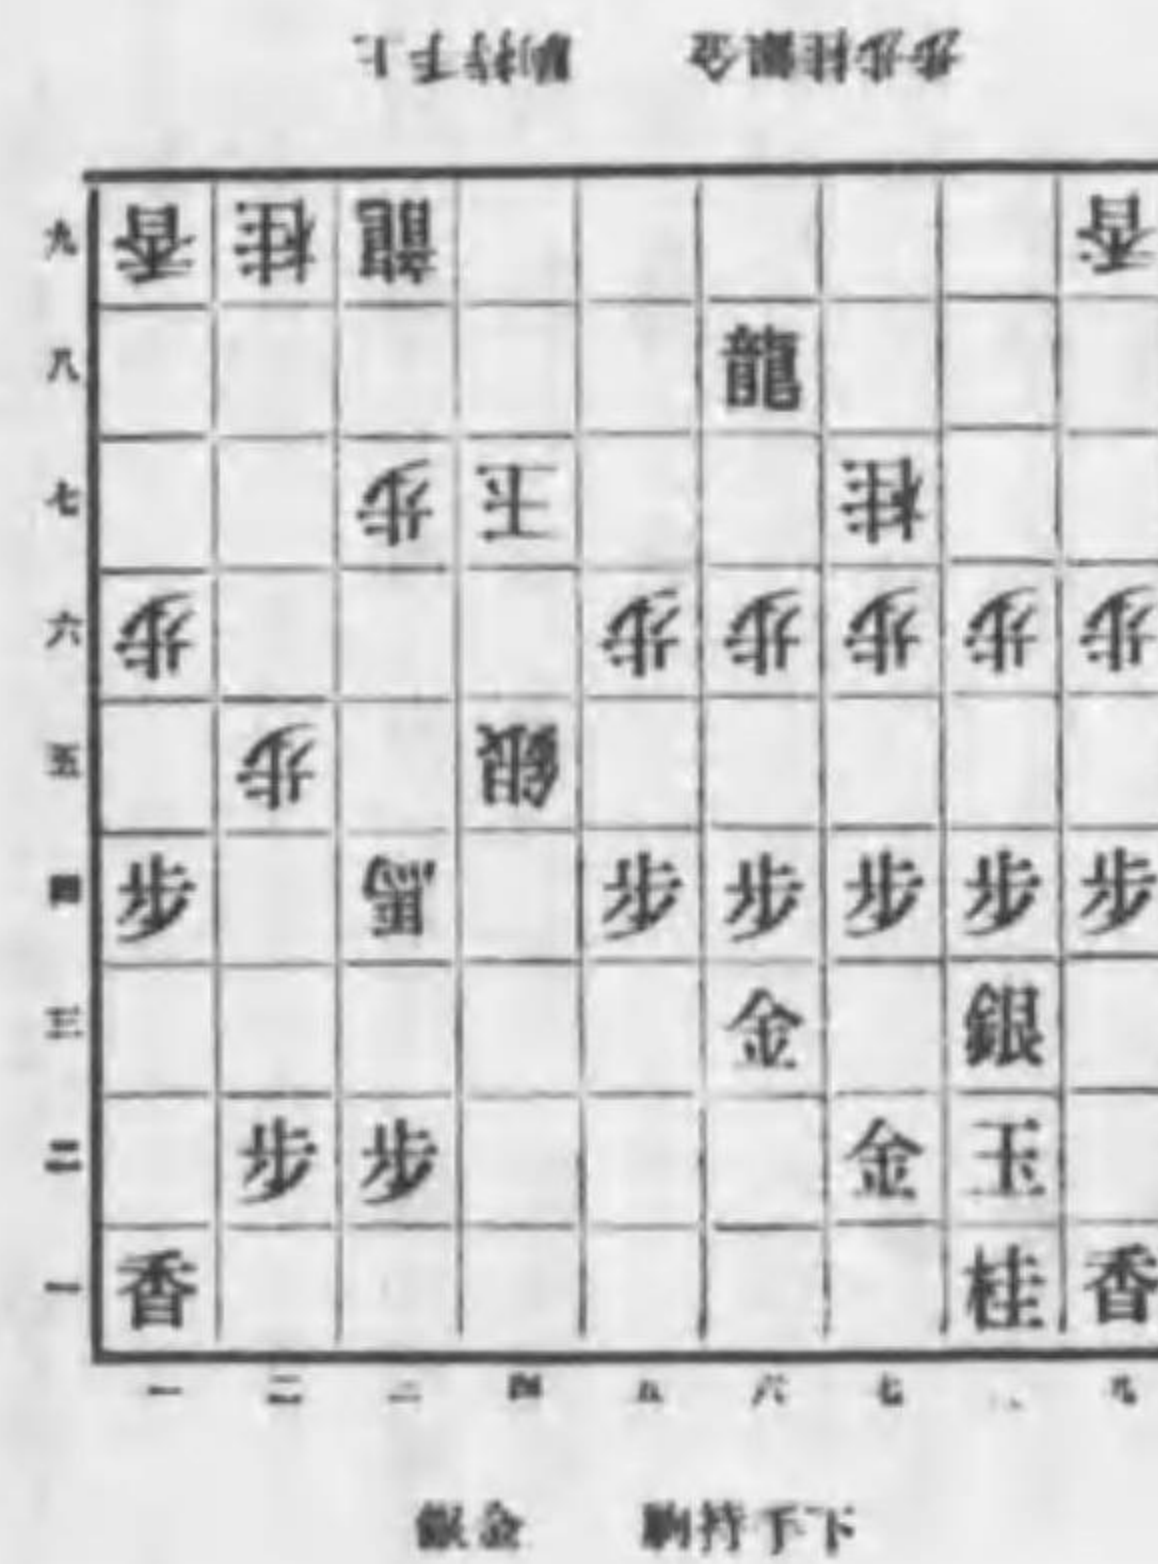 上手持駒 金銀桂歩歩
九 香 桂 龍 香
八 龍
七 歩 玉 桂
六 歩 歩 歩 歩 歩 歩
五 歩 銀
四 歩 馬 歩 歩 歩 歩 歩
三 金 銀
二 歩 歩 金 玉
一 香 桂 香
一 二 三 四 五 六 七 八 九
下手持駒 金銀